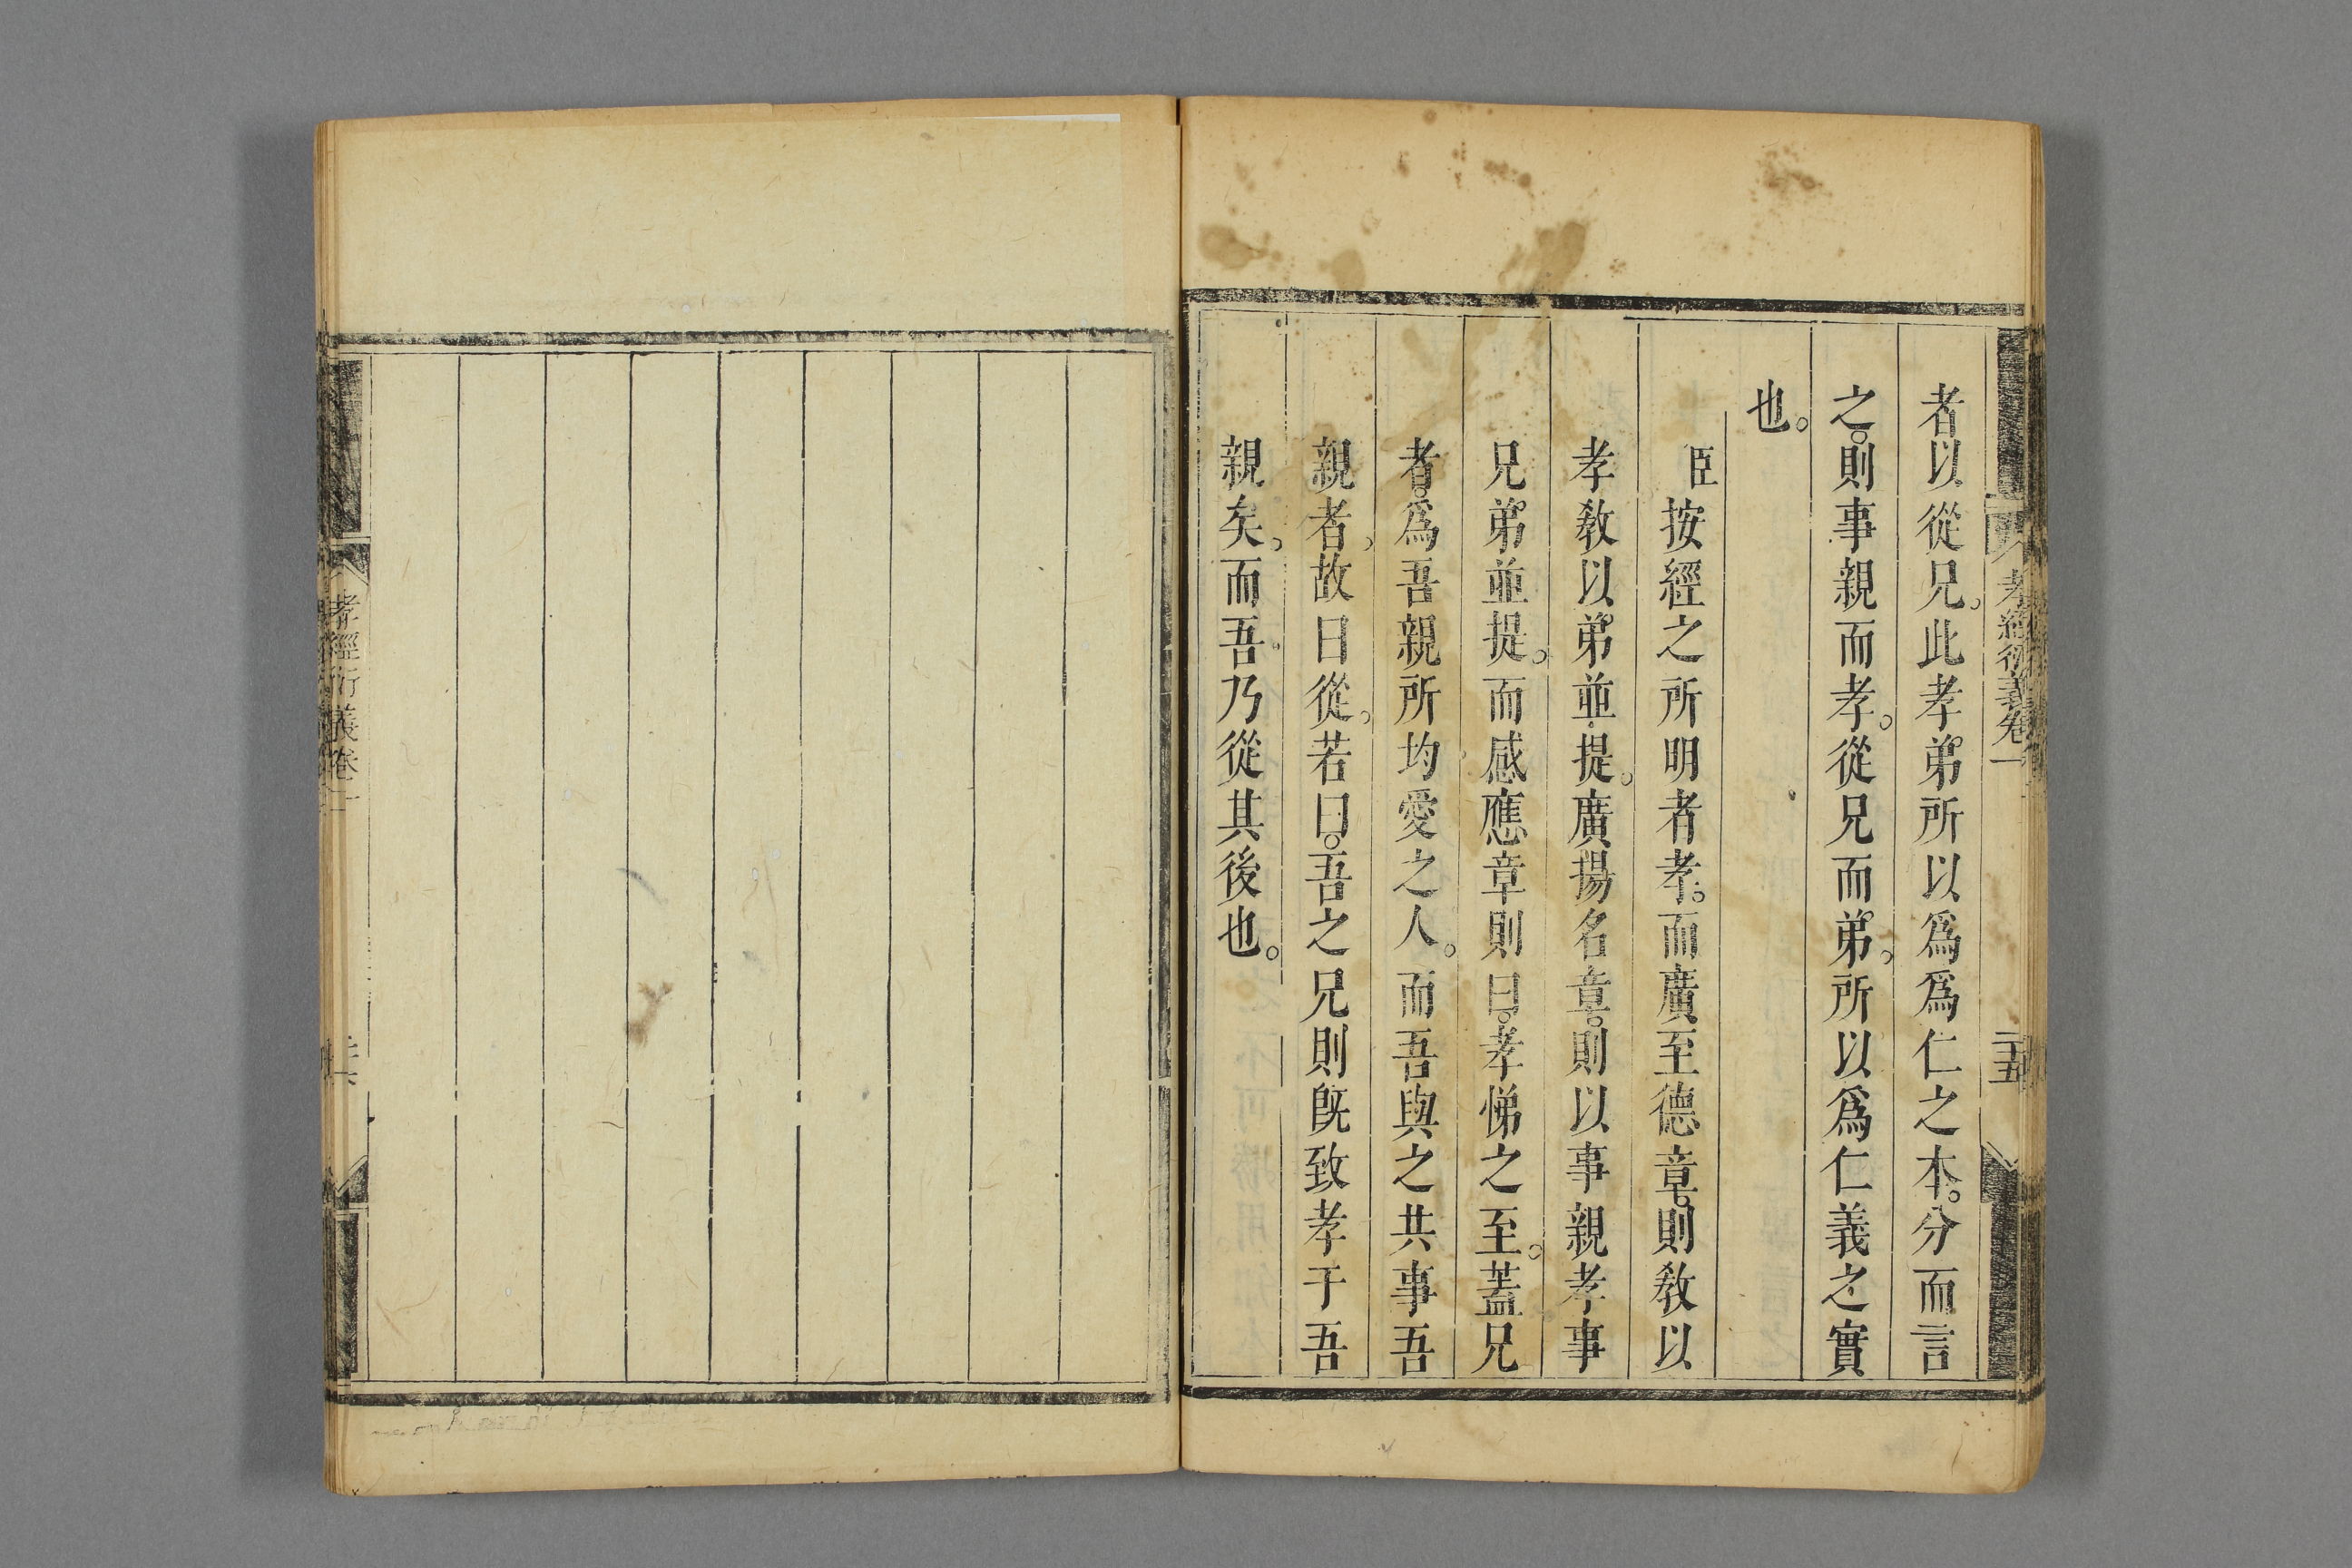 孝經衍義卷一
二十五
者以從兄。此孝弟所以爲爲仁之本。分而言
之。則事親而孝。從兄而弟。所以爲仁義之實
也。
臣按經之所明者孝。而廣至德章。則敎以
孝敎以弟並提。廣揚名章。則以事親孝事
兄弟並提。而感應章則曰。孝悌之至。蓋兄
者。爲吾親所均愛之人。而吾與之共事吾
親者。故曰從。若曰。吾之兄則旣致孝于吾
親矣。而吾乃從其後也。
孝經衍義卷一